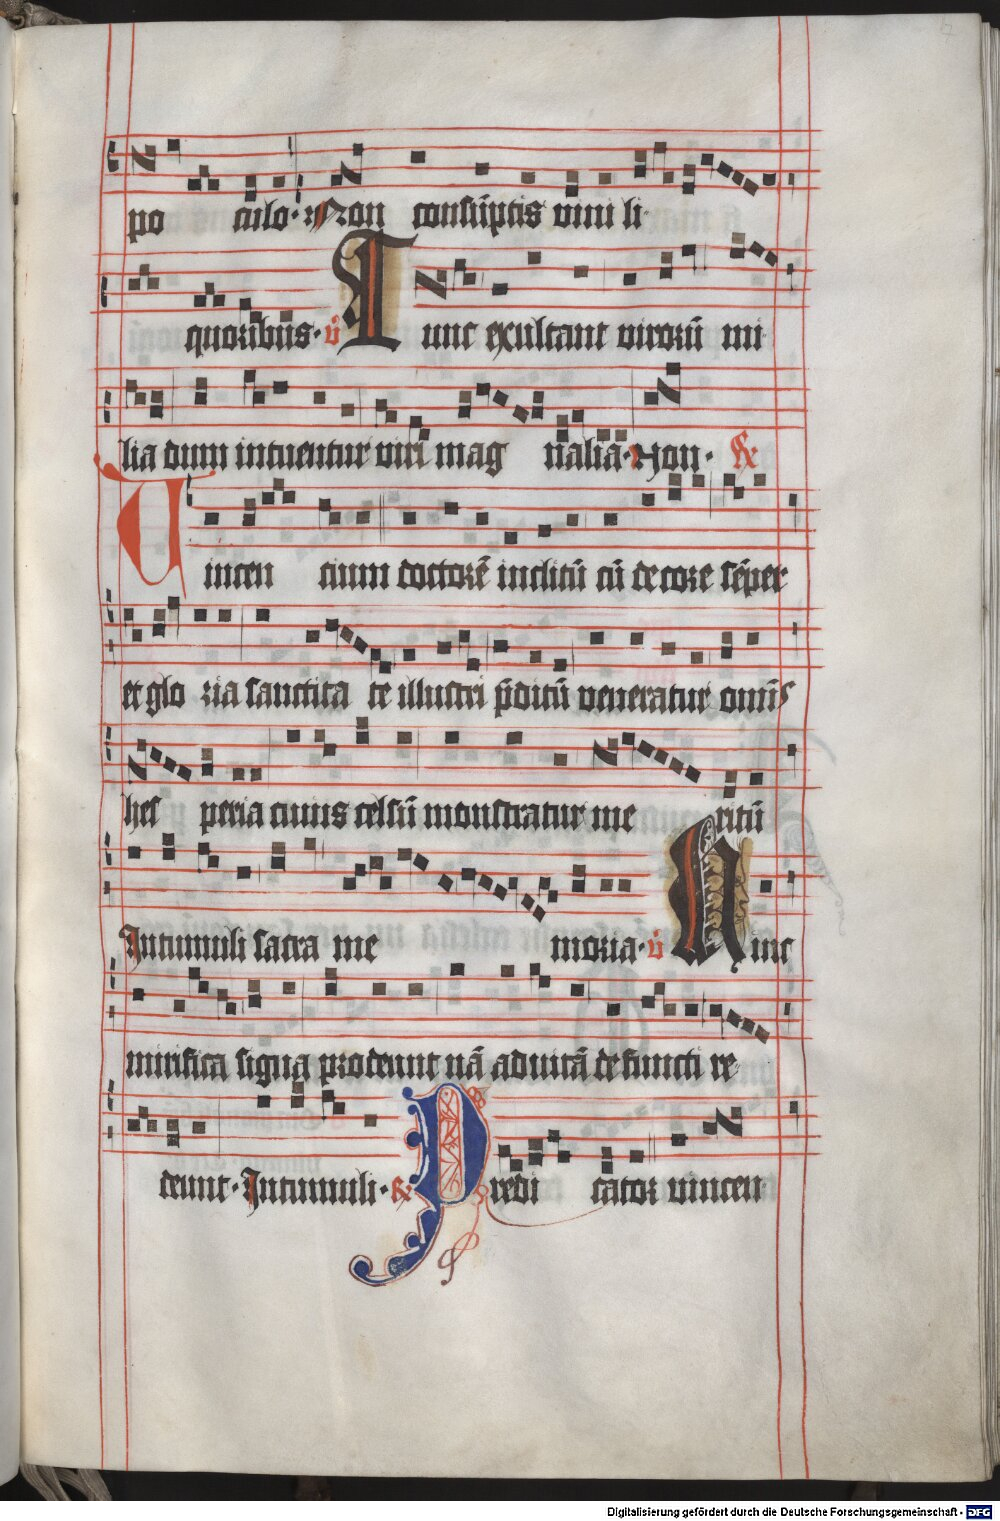 po culo· Non consūptis vini li
quoribus· v̄ Tunc exultant virorū mi
lia dum intuentur viri mag nalia· Non· R
Uincen cium doctorē inclitū cū decore sēper
et glo ria sanctita te illustri p̄ditū veneratur omīs
hes peria cuius celsū monstratur me ritū
In tumuli sacra me moria· v̄ Hinc
mirifica signa prodeunt nā ad vitā defuncti re
deunt· In tumuli· R Predi cator vincen
Digitalisierung gefördert durch die Deutsche Forschungsgemeinschaft - DFG